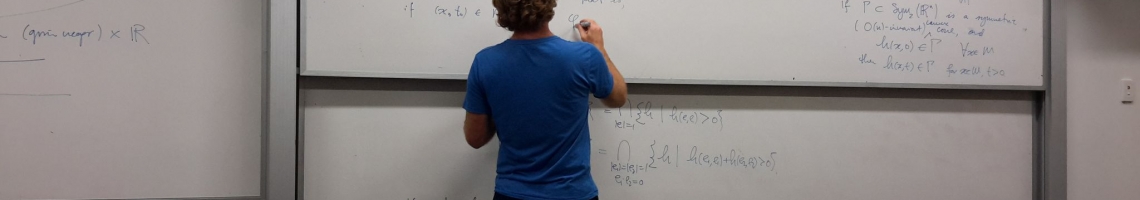 (grim reaper) × ℝ
if (x₀, t₀) ∈
φ
If Γ ⊂ Sym₂(ℝⁿ) is a symmetric
(O(n)-invariant) convex cone, and
h(x,0) ∈ Γ ∀x∈M
then h(x,t) ∈ Γ for x∈M, t>0
= ⋂|e|=1 {h | h(e,e)>0}
= ⋂|e₁|=|e₂|=1 e₁·e₂=0 {h | h(e₁,e₁)+h(e₂,e₂)>0}